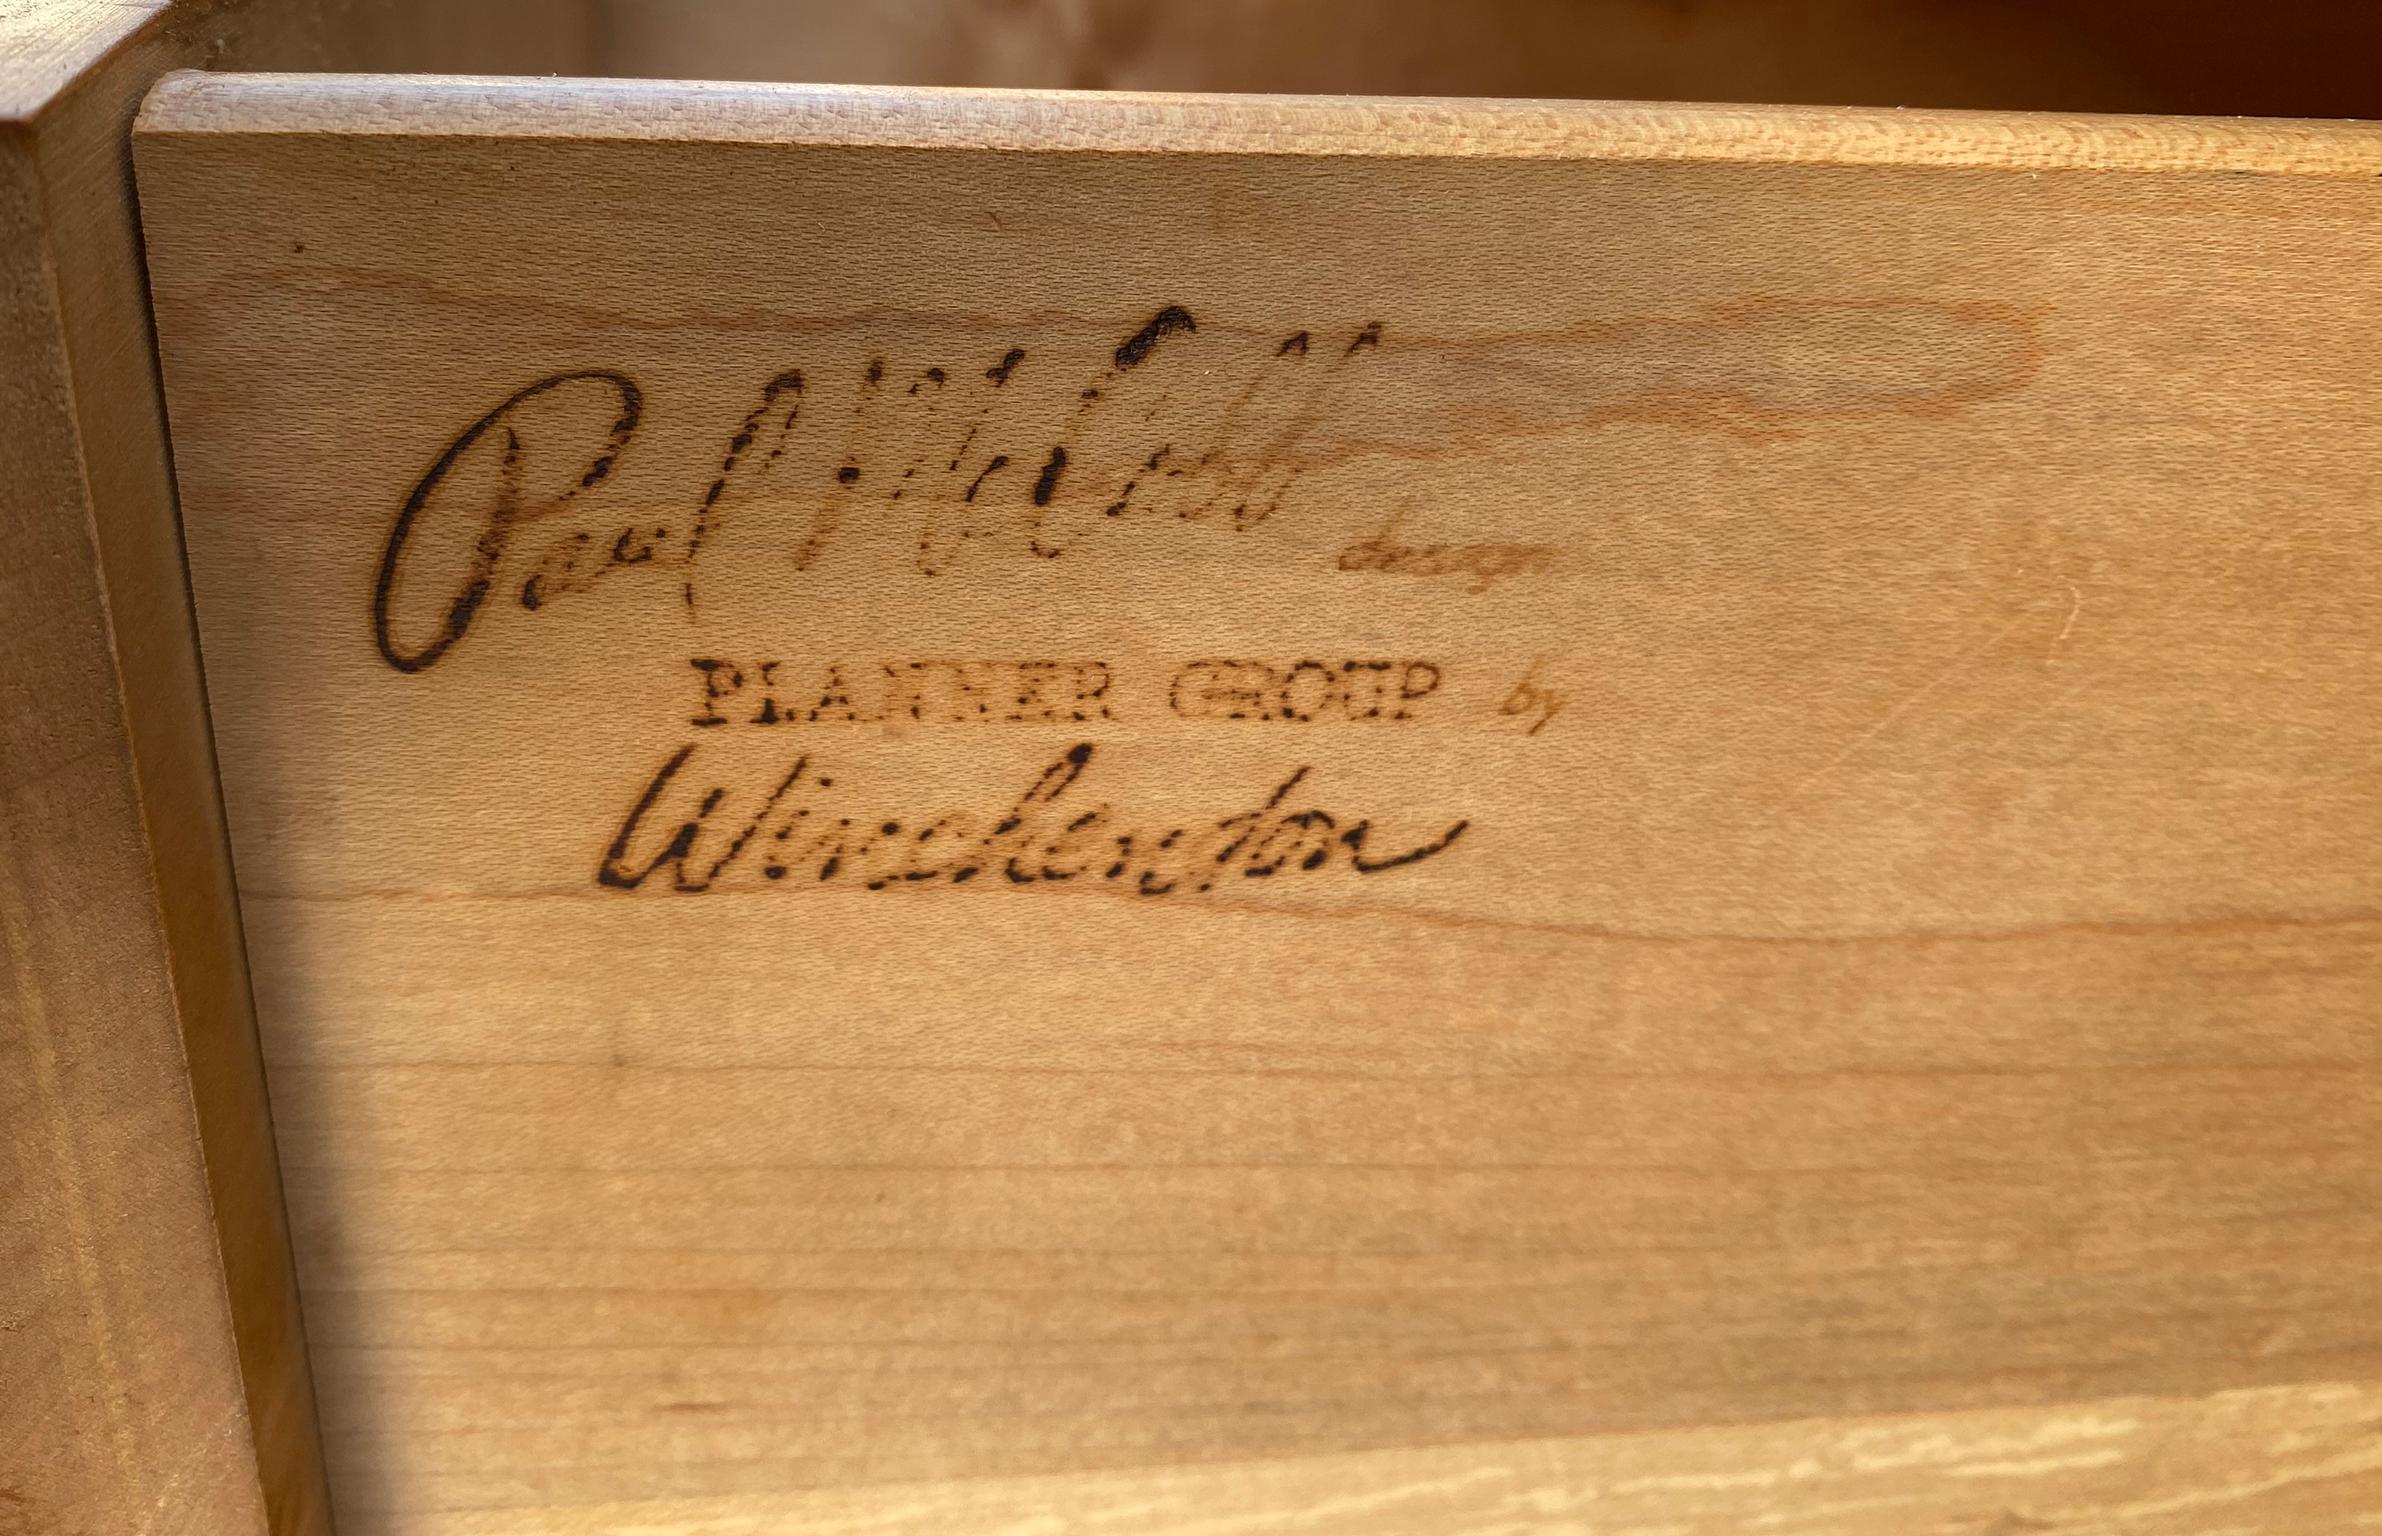 Paul McCobb
design
PLANNER GROUP by
Winchendon